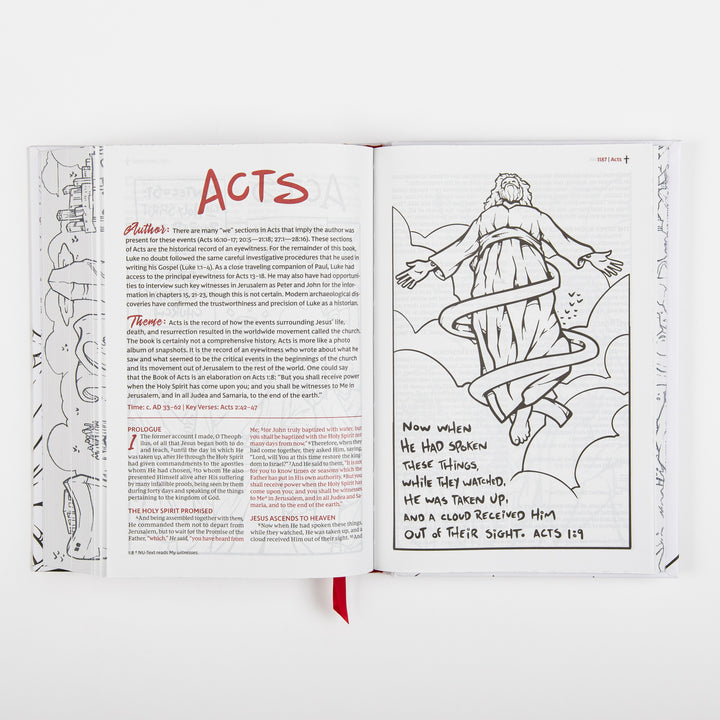 ACTS
Author: There are many "we" sections in Acts that imply the author was
present for these events (Acts 16:10–17; 20:5—21:18; 27:1—28:16). These sections
of Acts are the historical record of an eyewitness. For the remainder of this book,
Luke no doubt followed the same careful investigative procedures that he used in
writing his Gospel (Luke 1:1–4). As a close traveling companion of Paul, Luke had
access to the principal eyewitness for Acts 13–18. He may also have had opportuni-
ties to interview such key witnesses in Jerusalem as Peter and John for the infor-
mation in chapters 15, 21-23, though this is not certain. Modern archaeological dis-
coveries have confirmed the trustworthiness and precision of Luke as a historian.
Theme: Acts is the record of how the events surrounding Jesus' life,
death, and resurrection resulted in the worldwide movement called the church.
The book is certainly not a comprehensive history. Acts is more like a photo
album of snapshots. It is the record of an eyewitness who wrote about what he
saw and what seemed to be the critical events in the beginnings of the church
and its movement out of Jerusalem to the rest of the world. One could say
that the Book of Acts is an elaboration on Acts 1:8: "But you shall receive power
when the Holy Spirit has come upon you; and you shall be witnesses to Me in
Jerusalem, and in all Judea and Samaria, to the end of the earth."
Time: c. AD 33–62 | Key Verses: Acts 2:42–47
PROLOGUE
1 The former account I made, O Theoph-
ilus, of all that Jesus began both to do
and teach, ²until the day in which He
was taken up, after He through the Holy Spirit
had given commandments to the apostles
whom He had chosen, ³to whom He also
presented Himself alive after His suffering
by many infallible proofs, being seen by them
during forty days and speaking of the things
pertaining to the kingdom of God.
THE HOLY SPIRIT PROMISED
⁴And being assembled together with them,
He commanded them not to depart from
Jerusalem, but to wait for the Promise of the
Father, "which," He said, "you have heard from
Me; ⁵for John truly baptized with water, but
you shall be baptized with the Holy Spirit not
many days from now." ⁶Therefore, when they
had come together, they asked Him, saying,
"Lord, will You at this time restore the king-
dom to Israel?" ⁷And He said to them, "It is not
for you to know times or seasons which the
Father has put in His own authority. ⁸But you
shall receive power when the Holy Spirit has
come upon you; and you shall be witnesses
to Me ᵃ in Jerusalem, and in all Judea and Sa-
maria, and to the end of the earth."
JESUS ASCENDS TO HEAVEN
⁹Now when He had spoken these things,
while they watched, He was taken up, and a
cloud received Him out of their sight. ¹⁰And
1:8 ᵃ NU-Text reads My witnesses.
1187 | Acts
NOW WHEN
HE HAD SPOKEN
THESE THINGS,
WHILE THEY WATCHED,
HE WAS TAKEN UP,
AND A CLOUD RECEIVED HIM
OUT OF THEIR SIGHT. ACTS 1:9